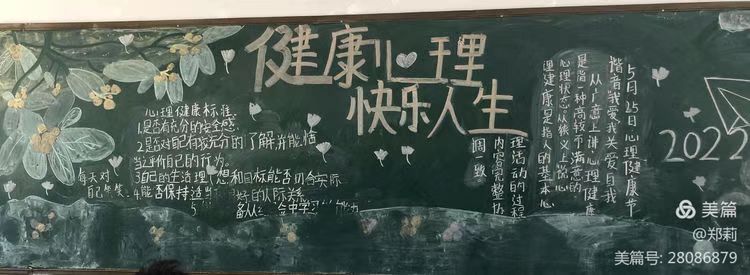 健康心理
快乐人生
心理健康标准
1.是否有充分的安全感
2.是否对自己有较充分的了解并能恰
当评价自己的行为。
3.自己的生活理想和目标能否切合实际
4.能否保持适当良好的人际关系
5
备从 学习的能力
每天对
自己笑笑
5月25日心理健康节
谐音我爱我关爱自我
从广意上讲心理健康
是指一种高较而满意的
心理状态从狭义上说心
理健康是指人的基本心
理活动的过程
内容完整协
调一致
2022
美篇
@郑莉
美篇号: 28086879